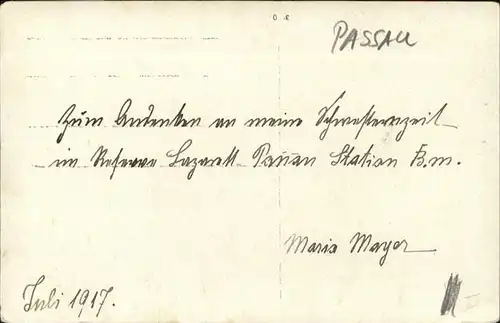 PASSAU
Zum Andenken an meine Schwesternzeit
im Reserve Lazarett Passau Station B.m.
Maria Mayer
Juli 1917.